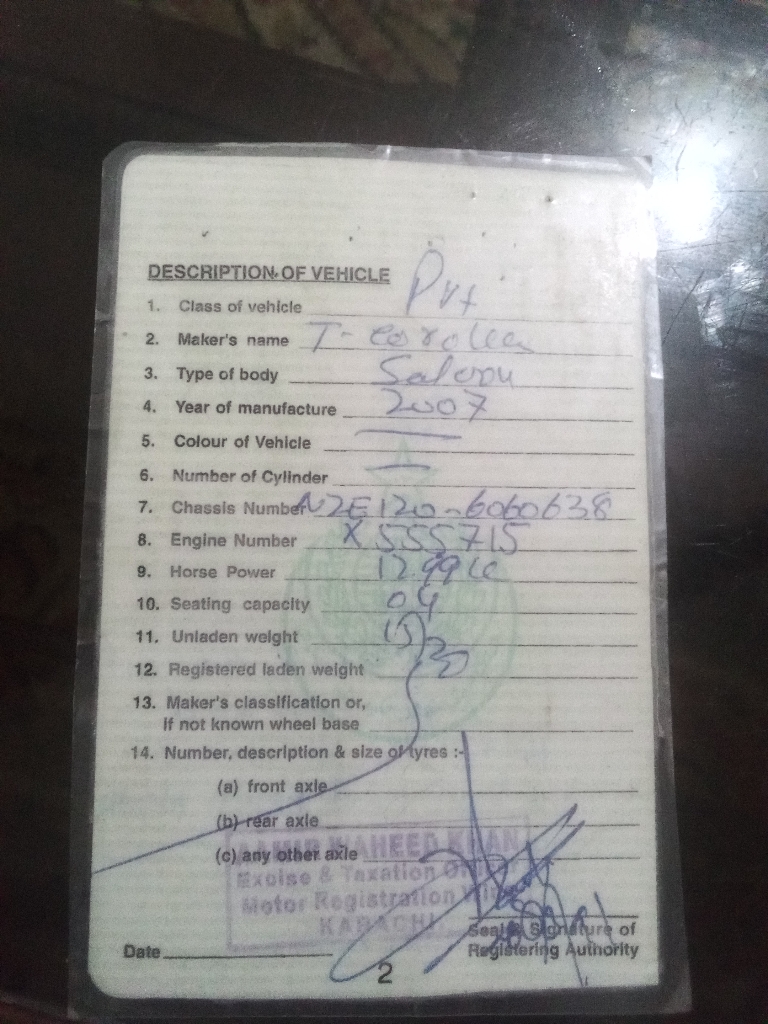 DESCRIPTION OF VEHICLE
1. Class of vehicle Pvt
2. Maker's name T-Corolla
3. Type of body Saloon
4. Year of manufacture 2007
5. Colour of Vehicle —
6. Number of Cylinder —
7. Chassis Number NZE120-6060638
8. Engine Number X555715
9. Horse Power 1299cc
10. Seating capacity 04
11. Unladen weight
12. Registered laden weight
13. Maker's classification or,
if not known wheel base
14. Number, description & size of tyres :-
(a) front axle
(b) rear axle
(c) any other axle
AAMIR WAHEED KHAN
Excise & Taxation
Motor Registration Wing
KARACHI
Seal & Signature of
Date Registering Authority
2